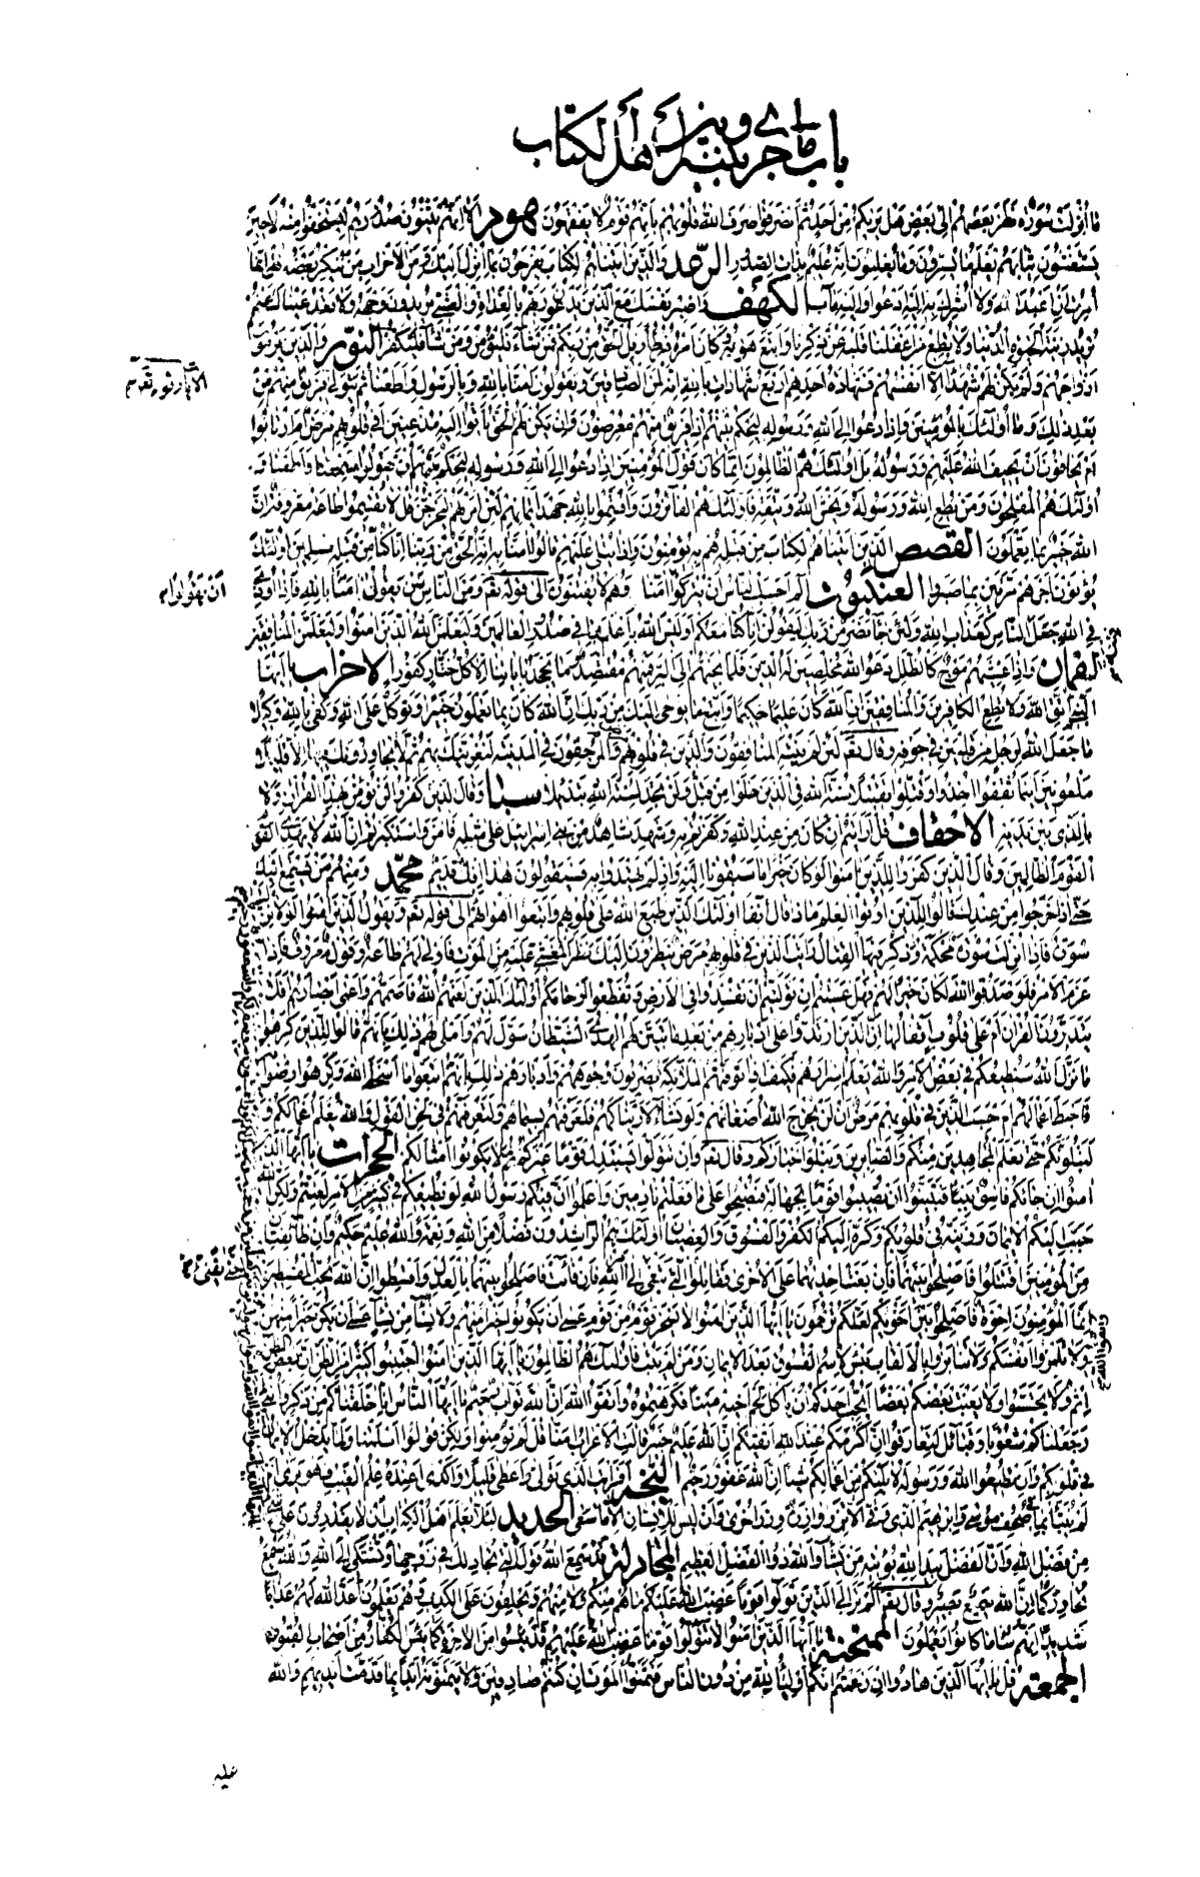 باب ما جرى بينه وبين أهل الكتاب
ما أنزلت سورة نظر بعضهم إلى بعض هل يريكم من أحد ثم انصرفوا صرف الله قلوبهم بأنهم قوم لا يفقهون هود ألا إنهم يثنون صدورهم ليستخفوا منه ألا حين
يستغشون ثيابهم يعلم ما يسرون وما يعلنون إنه عليم بذات الصدور الرعد والذين آتيناهم الكتاب يفرحون بما أنزل إليك ومن الأحزاب من ينكر بعضه قل إنما
أمرت أن أعبد الله ولا أشرك به إليه أدعو وإليه مآب الكهف واصبر نفسك مع الذين يدعون ربهم بالغداوة والعشي يريدون وجهه ولا تعد عيناك عنهم
تريد زينة الحيوة الدنيا ولا تطع من أغفلنا قلبه عن ذكرنا واتبع هويه وكان أمره فرطا وقل الحق من ربكم فمن شاء فليؤمن ومن شاء فليكفر النور والذين يرمون
أزواجهم ولم يكن لهم شهداء إلا أنفسهم فشهادة أحدهم أربع شهادات بالله إنه لمن الصادقين ويقولون آمنا بالله وبالرسول وأطعنا ثم يتولى فريق منهم من
بعد ذلك وما أولئك بالمؤمنين وإذا دعوا إلى الله ورسوله ليحكم بينهم إذا فريق منهم معرضون وإن يكن لهم الحق يأتوا إليه مذعنين أفي قلوبهم مرض أم ارتابوا
أم يخافون أن يحيف الله عليهم ورسوله بل أولئك هم الظالمون إنما كان قول المؤمنين إذا دعوا إلى الله ورسوله ليحكم بينهم أن يقولوا سمعنا وأطعنا و
أولئك هم المفلحون ومن يطع الله ورسوله ويخش الله ويتقه فأولئك هم الفائزون وأقسموا بالله جهد أيمانهم لئن أمرتهم ليخرجن قل لا تقسموا طاعة معروفة إن
الله خبير بما تعملون القصص الذين آتيناهم الكتاب من قبله هم به يؤمنون وإذا يتلى عليهم قالوا آمنا به إنه الحق من ربنا إنا كنا من قبله مسلمين أولئك
يؤتون أجرهم مرتين بما صبروا العنكبوت الم أحسب الناس أن يتركوا آمنا وهم لا يفتنون إلى قوله تع ومن الناس من يقول آمنا بالله فإذا أوذي
في الله جعل فتنة الناس كعذاب الله ولئن جاء نصر من ربك ليقولن إنا كنا معكم أوليس الله بأعلم بما في صدور العالمين وليعلمن الله الذين آمنوا وليعلمن المنافقين
لقمان وإذا غشيهم موج كالظلل دعوا الله مخلصين له الدين فلما نجيهم إلى البر فمنهم مقتصد وما يجحد بآياتنا إلا كل ختار كفور الأحزاب يا أيها
النبي اتق الله ولا تطع الكافرين والمنافقين إن الله كان عليما حكيما واتبع ما يوحى إليك من ربك إن الله كان بما تعملون خبيرا وتوكل على الله وكفى بالله وكيلا
ما جعل الله لرجل من قلبين في جوفه وقال تع لئن لم ينته المنافقون والذين في قلوبهم والمرجفون في المدينة لنغرينك بهم ثم لا يجاورونك فيها إلا قليلا
ملعونين أينما ثقفوا أخذوا وقتلوا تقتيلا سنة الله في الذين خلوا من قبل ولن تجد لسنة الله تبديلا سبأ وقال الذين كفروا لن نؤمن بهذا القرآن ولا
بالذي بين يديه الأحقاف قل أرأيتم إن كان من عند الله وكفرتم به وشهد شاهد من بني إسرائيل على مثله فآمن واستكبرتم إن الله لا يهدي القوم
الظالمين وقال الذين كفروا للذين آمنوا لو كان خيرا ما سبقونا إليه وإذ لم يهتدوا به فسيقولون هذا إفك قديم محمد ومنهم من يستمع إليك
حتى إذا خرجوا من عندك قالوا للذين أوتوا العلم ماذا قال آنفا أولئك الذين طبع الله على قلوبهم واتبعوا أهواءهم إلى قوله تع ويقول الذين آمنوا لولا نزلت
سورة فإذا أنزلت سورة محكمة وذكر فيها القتال رأيت الذين في قلوبهم مرض ينظرون إليك نظر المغشي عليه من الموت فأولى لهم طاعة وقول معروف فإذا
عزم الأمر فلو صدقوا الله لكان خيرا لهم فهل عسيتم إن توليتم أن تفسدوا في الأرض وتقطعوا أرحامكم أولئك الذين لعنهم الله فأصمهم وأعمى أبصارهم أفلا
يتدبرون القرآن أم على قلوب أقفالها إن الذين ارتدوا على أدبارهم من بعد ما تبين لهم الهدى الشيطان سول لهم وأملى لهم ذلك بأنهم قالوا للذين كرهوا
ما نزل الله سنطيعكم في بعض الأمر والله يعلم إسرارهم فكيف إذا توفتهم الملائكة يضربون وجوههم وأدبارهم ذلك بأنهم اتبعوا ما أسخط الله وكرهوا رضوانه
فأحبط أعمالهم أم حسب الذين في قلوبهم مرض أن لن يخرج الله أضغانهم ولو نشاء لأريناكهم فلعرفتهم بسيماهم ولتعرفنهم في لحن القول والله يعلم أعمالكم و
لنبلونكم حتى نعلم المجاهدين منكم والصابرين ونبلوا أخباركم وقال تع وإن تتولوا يستبدل قوما غيركم ثم لا يكونوا أمثالكم الحجرات يا أيها الذين
آمنوا إن جاءكم فاسق بنبأ فتبينوا أن تصيبوا قوما بجهالة فتصبحوا على ما فعلتم نادمين واعلموا أن فيكم رسول الله لو يطيعكم في كثير من الأمر لعنتم ولكن الله
حبب إليكم الإيمان وزينه في قلوبكم وكره إليكم الكفر والفسوق والعصيان أولئك هم الراشدون فضلا من الله ونعمة والله عليم حكيم وإن طائفتان
من المؤمنين اقتتلوا فأصلحوا بينهما فإن بغت إحديهما على الأخرى فقاتلوا التي تبغي إلى أمر الله فإن فاءت فأصلحوا بينهما بالعدل وأقسطوا إن الله يحب المقسطين
إنما المؤمنون إخوة فأصلحوا بين أخويكم لعلكم ترحمون يا أيها الذين آمنوا لا يسخر قوم من قوم عسى أن يكونوا خيرا منهم ولا نساء من نساء عسى أن يكن خيرا منهن
ولا تلمزوا أنفسكم ولا تنابزوا بالألقاب بئس الاسم الفسوق بعد الإيمان ومن لم يتب فأولئك هم الظالمون يا أيها الذين آمنوا اجتنبوا كثيرا من الظن إن بعض الظن
إثم ولا تجسسوا ولا يغتب بعضكم بعضا أيحب أحدكم أن يأكل لحم أخيه ميتا فكرهتموه واتقوا الله إن الله تواب رحيم يا أيها الناس إنا خلقناكم من ذكر وأنثى
وجعلناكم شعوبا وقبائل لتعارفوا إن أكرمكم عند الله أتقيكم إن الله عليم خبير قالت الأعراب آمنا قل لم تؤمنوا ولكن قولوا أسلمنا ولما يدخل الإيمان
في قلوبكم وإن تطيعوا الله ورسوله لا يلتكم من أعمالكم شيئا إن الله غفور رحيم النجم أفرأيت الذي تولى وأعطى قليلا وأكدى أعنده علم الغيب فهو يرى أم
لم ينبأ بما في صحف موسى وإبرهيم الذي وفى ألا تزر وازرة وزر أخرى وأن ليس للإنسان إلا ما سعى الحديد لئلا يعلم أهل الكتاب أن لا يقدرون على شيء
من فضل الله وأن الفضل بيد الله يؤتيه من يشاء والله ذو الفضل العظيم المجادلة قد سمع الله قول التي تجادلك في زوجها وتشتكي إلى الله والله يسمع
تحاوركما إن الله سميع بصير وقال تع ألم تر إلى الذين تولوا قوما غضب الله عليهم ما هم منكم ولا منهم ويحلفون على الكذب وهم يعلمون أعد الله لهم عذابا
شديدا إنهم ساء ما كانوا يعملون الممتحنة يا أيها الذين آمنوا لا تتولوا قوما غضب الله عليهم قد يئسوا من الآخرة كما يئس الكفار من أصحاب القبور
الجمعة قل يا أيها الذين هادوا إن زعمتم أنكم أولياء لله من دون الناس فتمنوا الموت إن كنتم صادقين ولا يتمنونه أبدا بما قدمت أيديهم والله
أن يقولوا
حتى تفيء
عليم